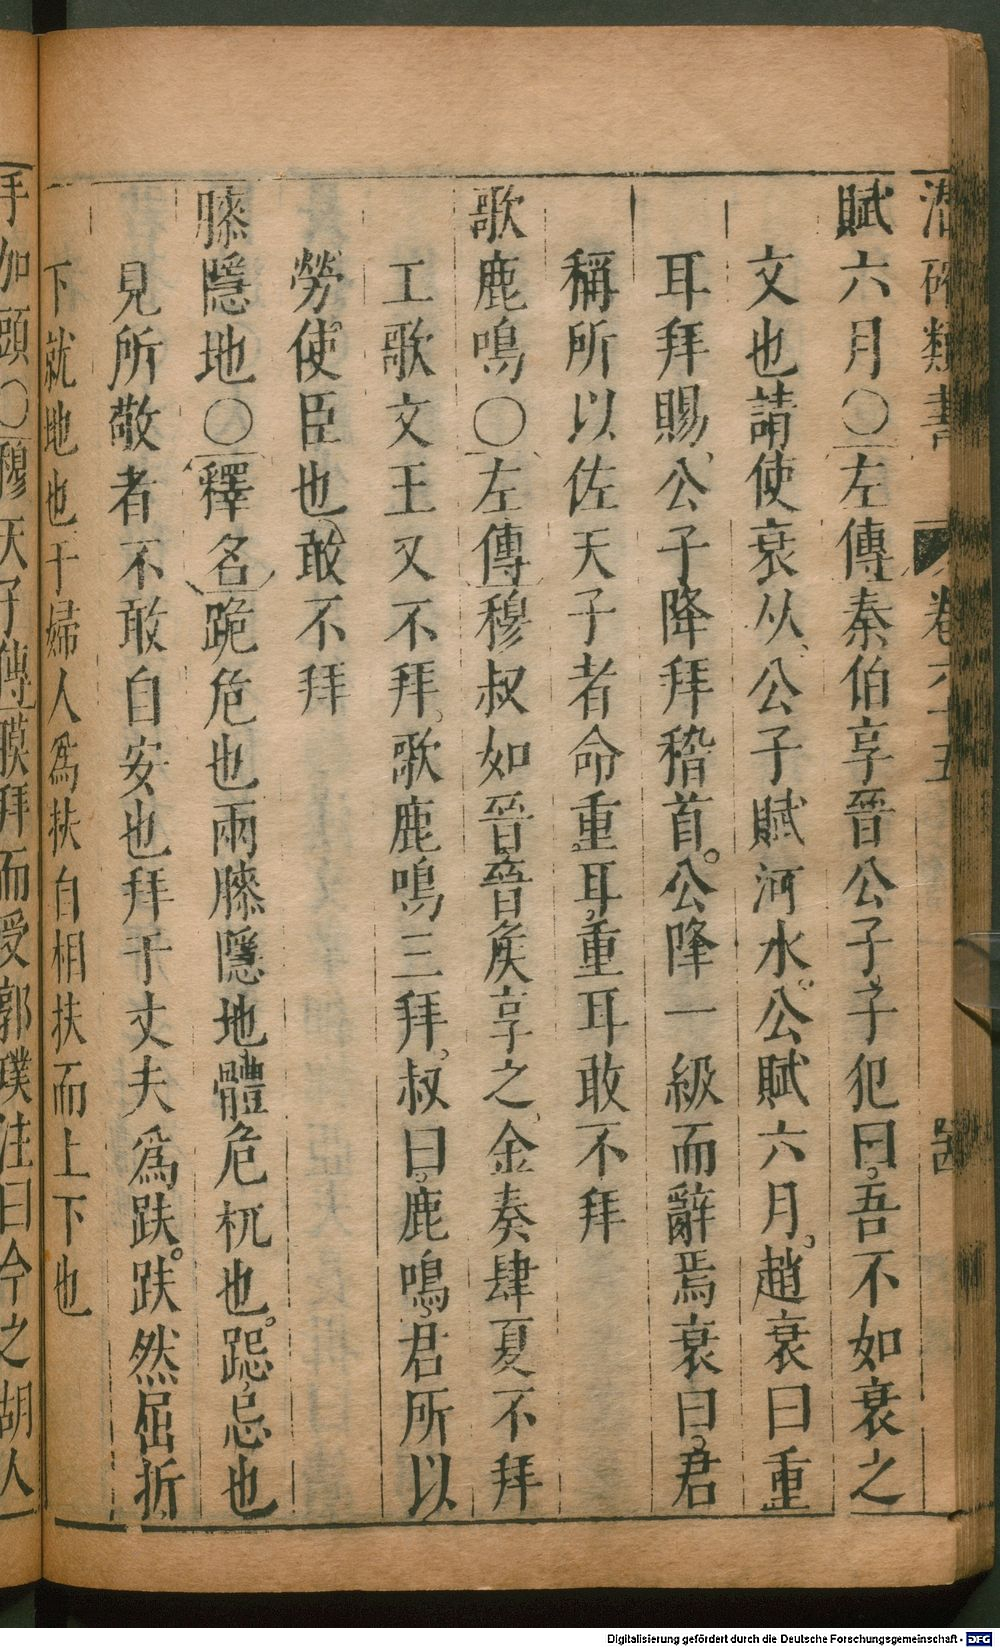 潛確類書 卷六十五
賦六月〇左傳秦伯享晉公子子犯曰吾不如衰之
文也請使衰从公子賦河水公賦六月趙衰曰重
耳拜賜公子降拜稽首公降一級而辭焉衰曰君
稱所以佐天子者命重耳重耳敢不拜
歌鹿鳴〇左傳穆叔如晉晉矦享之金奏肆夏不拜
工歌文王又不拜歌鹿鳴三拜叔曰鹿鳴君所以
勞使臣也敢不拜
膝隱地〇釋名跪危也兩膝隱地體危杌也跽忌也
見所敬者不敢自安也拜于丈夫爲趺趺然屈折
下就地也于婦人爲扶自相扶而上下也
手加頭〇穆天子傳膜拜而受郭璞注曰今之胡人
Digitalisierung gefördert durch die Deutsche Forschungsgemeinschaft - DFG